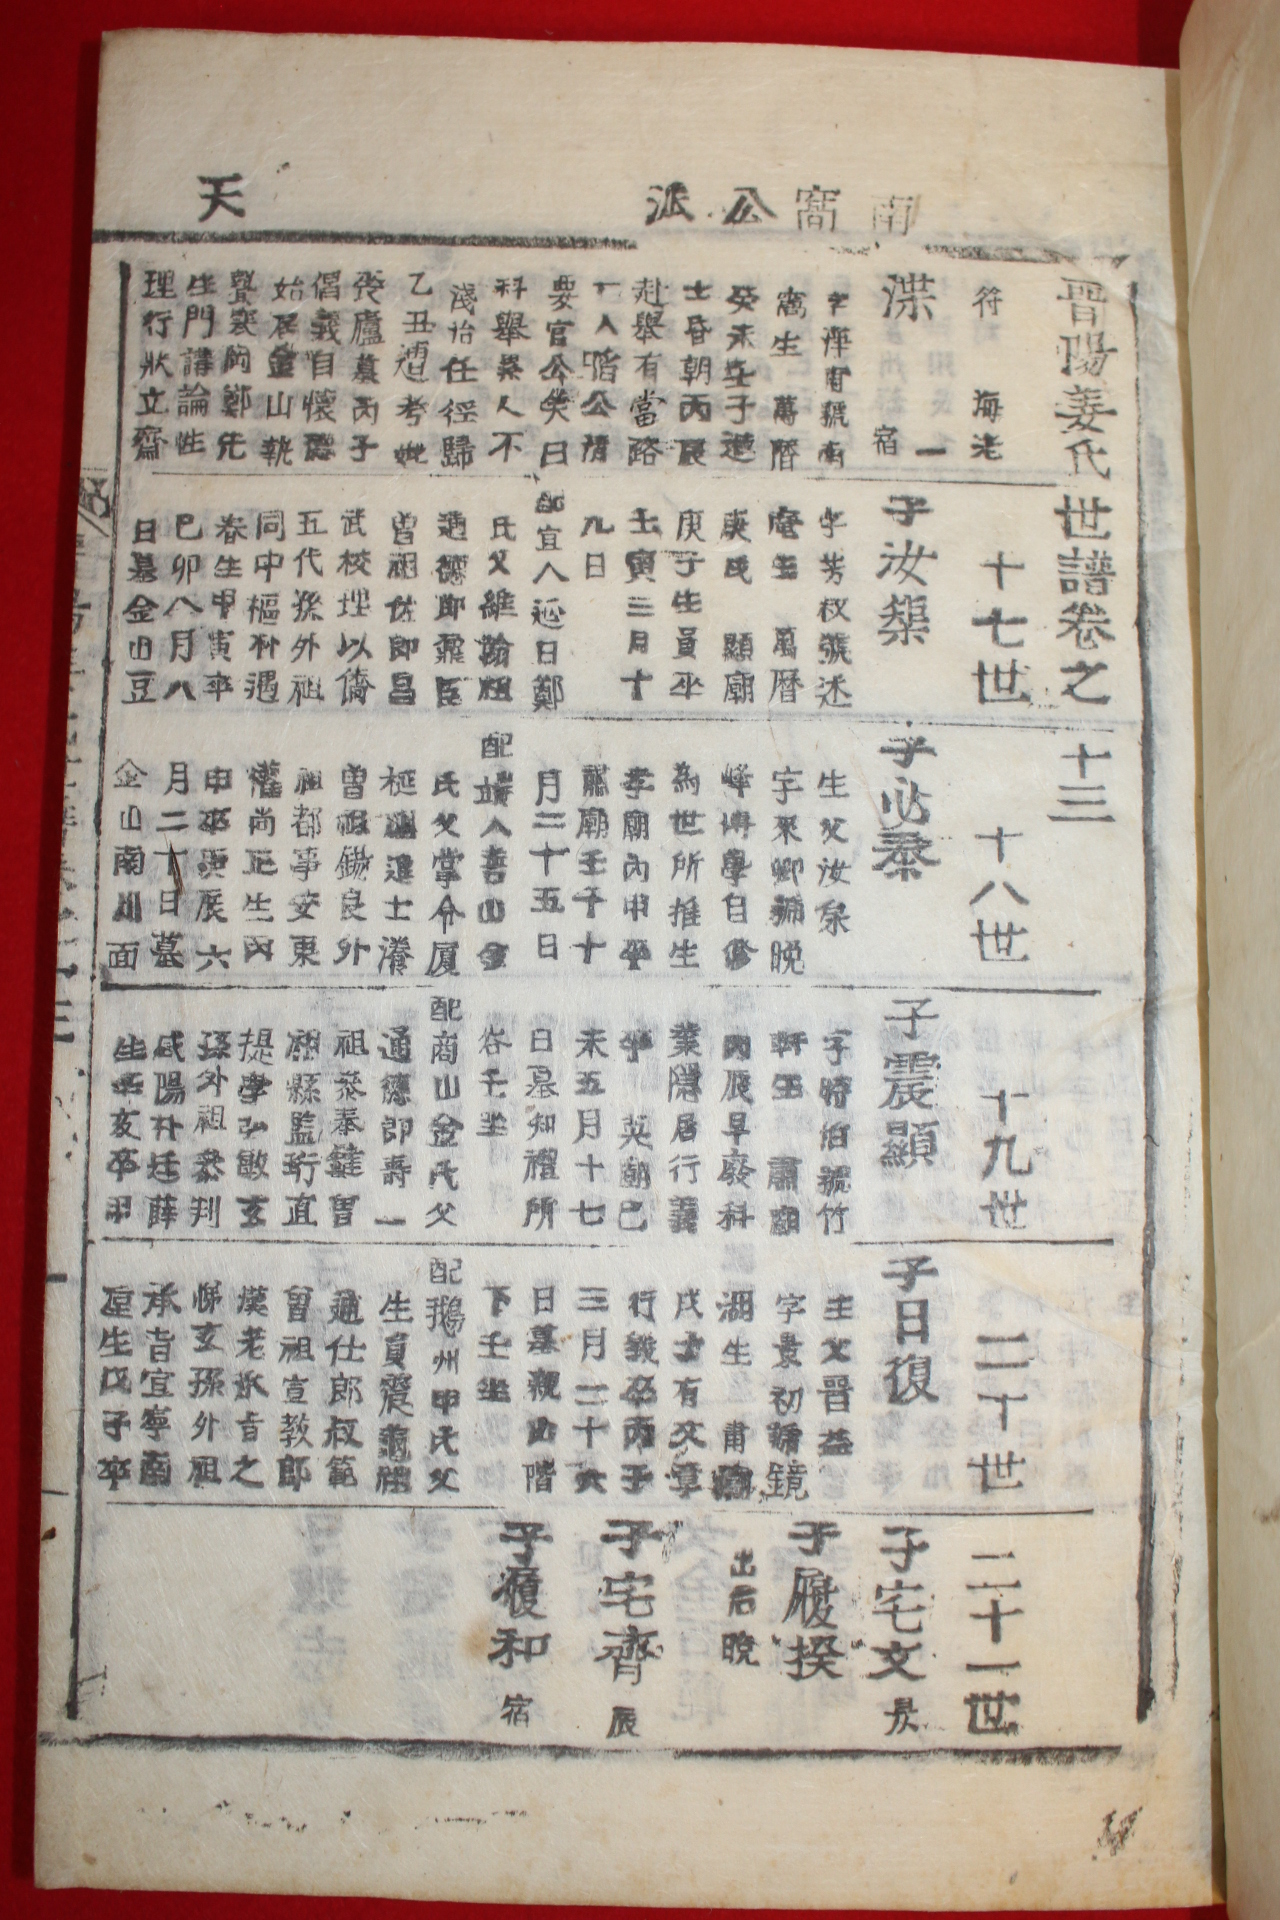 南窩公派
天
晋陽姜氏世譜卷之十三
符 海老
渫 一
宿
字渾甫號南
窩生 萬曆
癸未壬子進
士昏朝丙辰
赴舉有當路
一人啗公褙
要官公笑曰
科舉累人不
淺怡任徑歸
乙丑遭考妣
喪廬墓丙子
倡義自懷德
始居金山執
贄寒岡鄭先
生門講論性
理行狀立齋
十七世
子汝榘
字芳叔號述
庵生 萬曆
庚民 顯廟
庚子生員卒
壬寅三月十
九日
配宜人延日鄭
氏父維翰祖
通德郎鼐臣
曾祖佐郎昌
武校理以僑
五代孫外祖
同中樞朴遇
春生甲寅卒
己卯八月八
日墓金山豆
十八世
子必泰
生父汝泉
字來卿號晩
峰博學自修
為世所推生
孝廟丙申卒
肅廟壬子十
月二十五日
配端人善山金
氏父掌令廈
梃祖進士瀁
曾祖錫良外
祖都事安東
權尚正生丙
申卒庚辰六
月二十日墓
金山南川面
十九世
子震顯
字時伯號竹
軒生 肅廟
丙辰早廢科
業隱居行義
卒 英廟己
未五月十七
日墓知禮所
谷壬坐
配商山金氏父
通德郎壽一
祖參奉 曾
祖縣監珩直
提學弘敏玄
孫外祖參判
咸陽朴廷薛
生辛亥卒甲
二十世
子日復
生父晋益
字景初號鏡
湖生 肅廟
戊 士有文章
行義卒丙子
三月二十六
日墓親山階
下壬坐
配鵝州申氏父
生員震龜祖
通仕郎叔範
曾祖宣教郎
漢老承旨之
悌玄孫外祖
承旨宜寧南
垕生戊子卒
二十一世
子宅文 昃
子履揆
出后晩
子宅齊 辰
子履和 宿